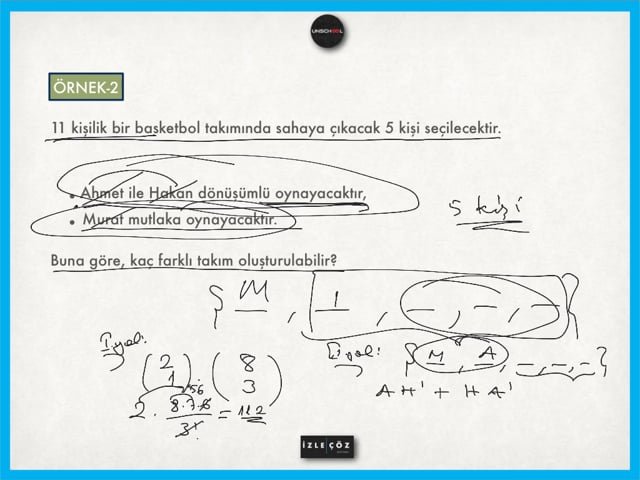 UNSCHOOL
ÖRNEK-2
11 kişilik bir basketbol takımında sahaya çıkacak 5 kişi seçilecektir.
• Ahmet ile Hakan dönüşümlü oynayacaktır,
• Murat mutlaka oynayacaktır.
5 kişi
Buna göre, kaç farklı takım oluşturulabilir?
{ M , 1 , _ , _ , _ }
I.yol:
(2 1) (8 3)
2 . 8.7.6 / 3! = 112
56
II.yol:
{ M , A , _ , _ , _ }
A H' + H A'
İZLE ÇÖZ